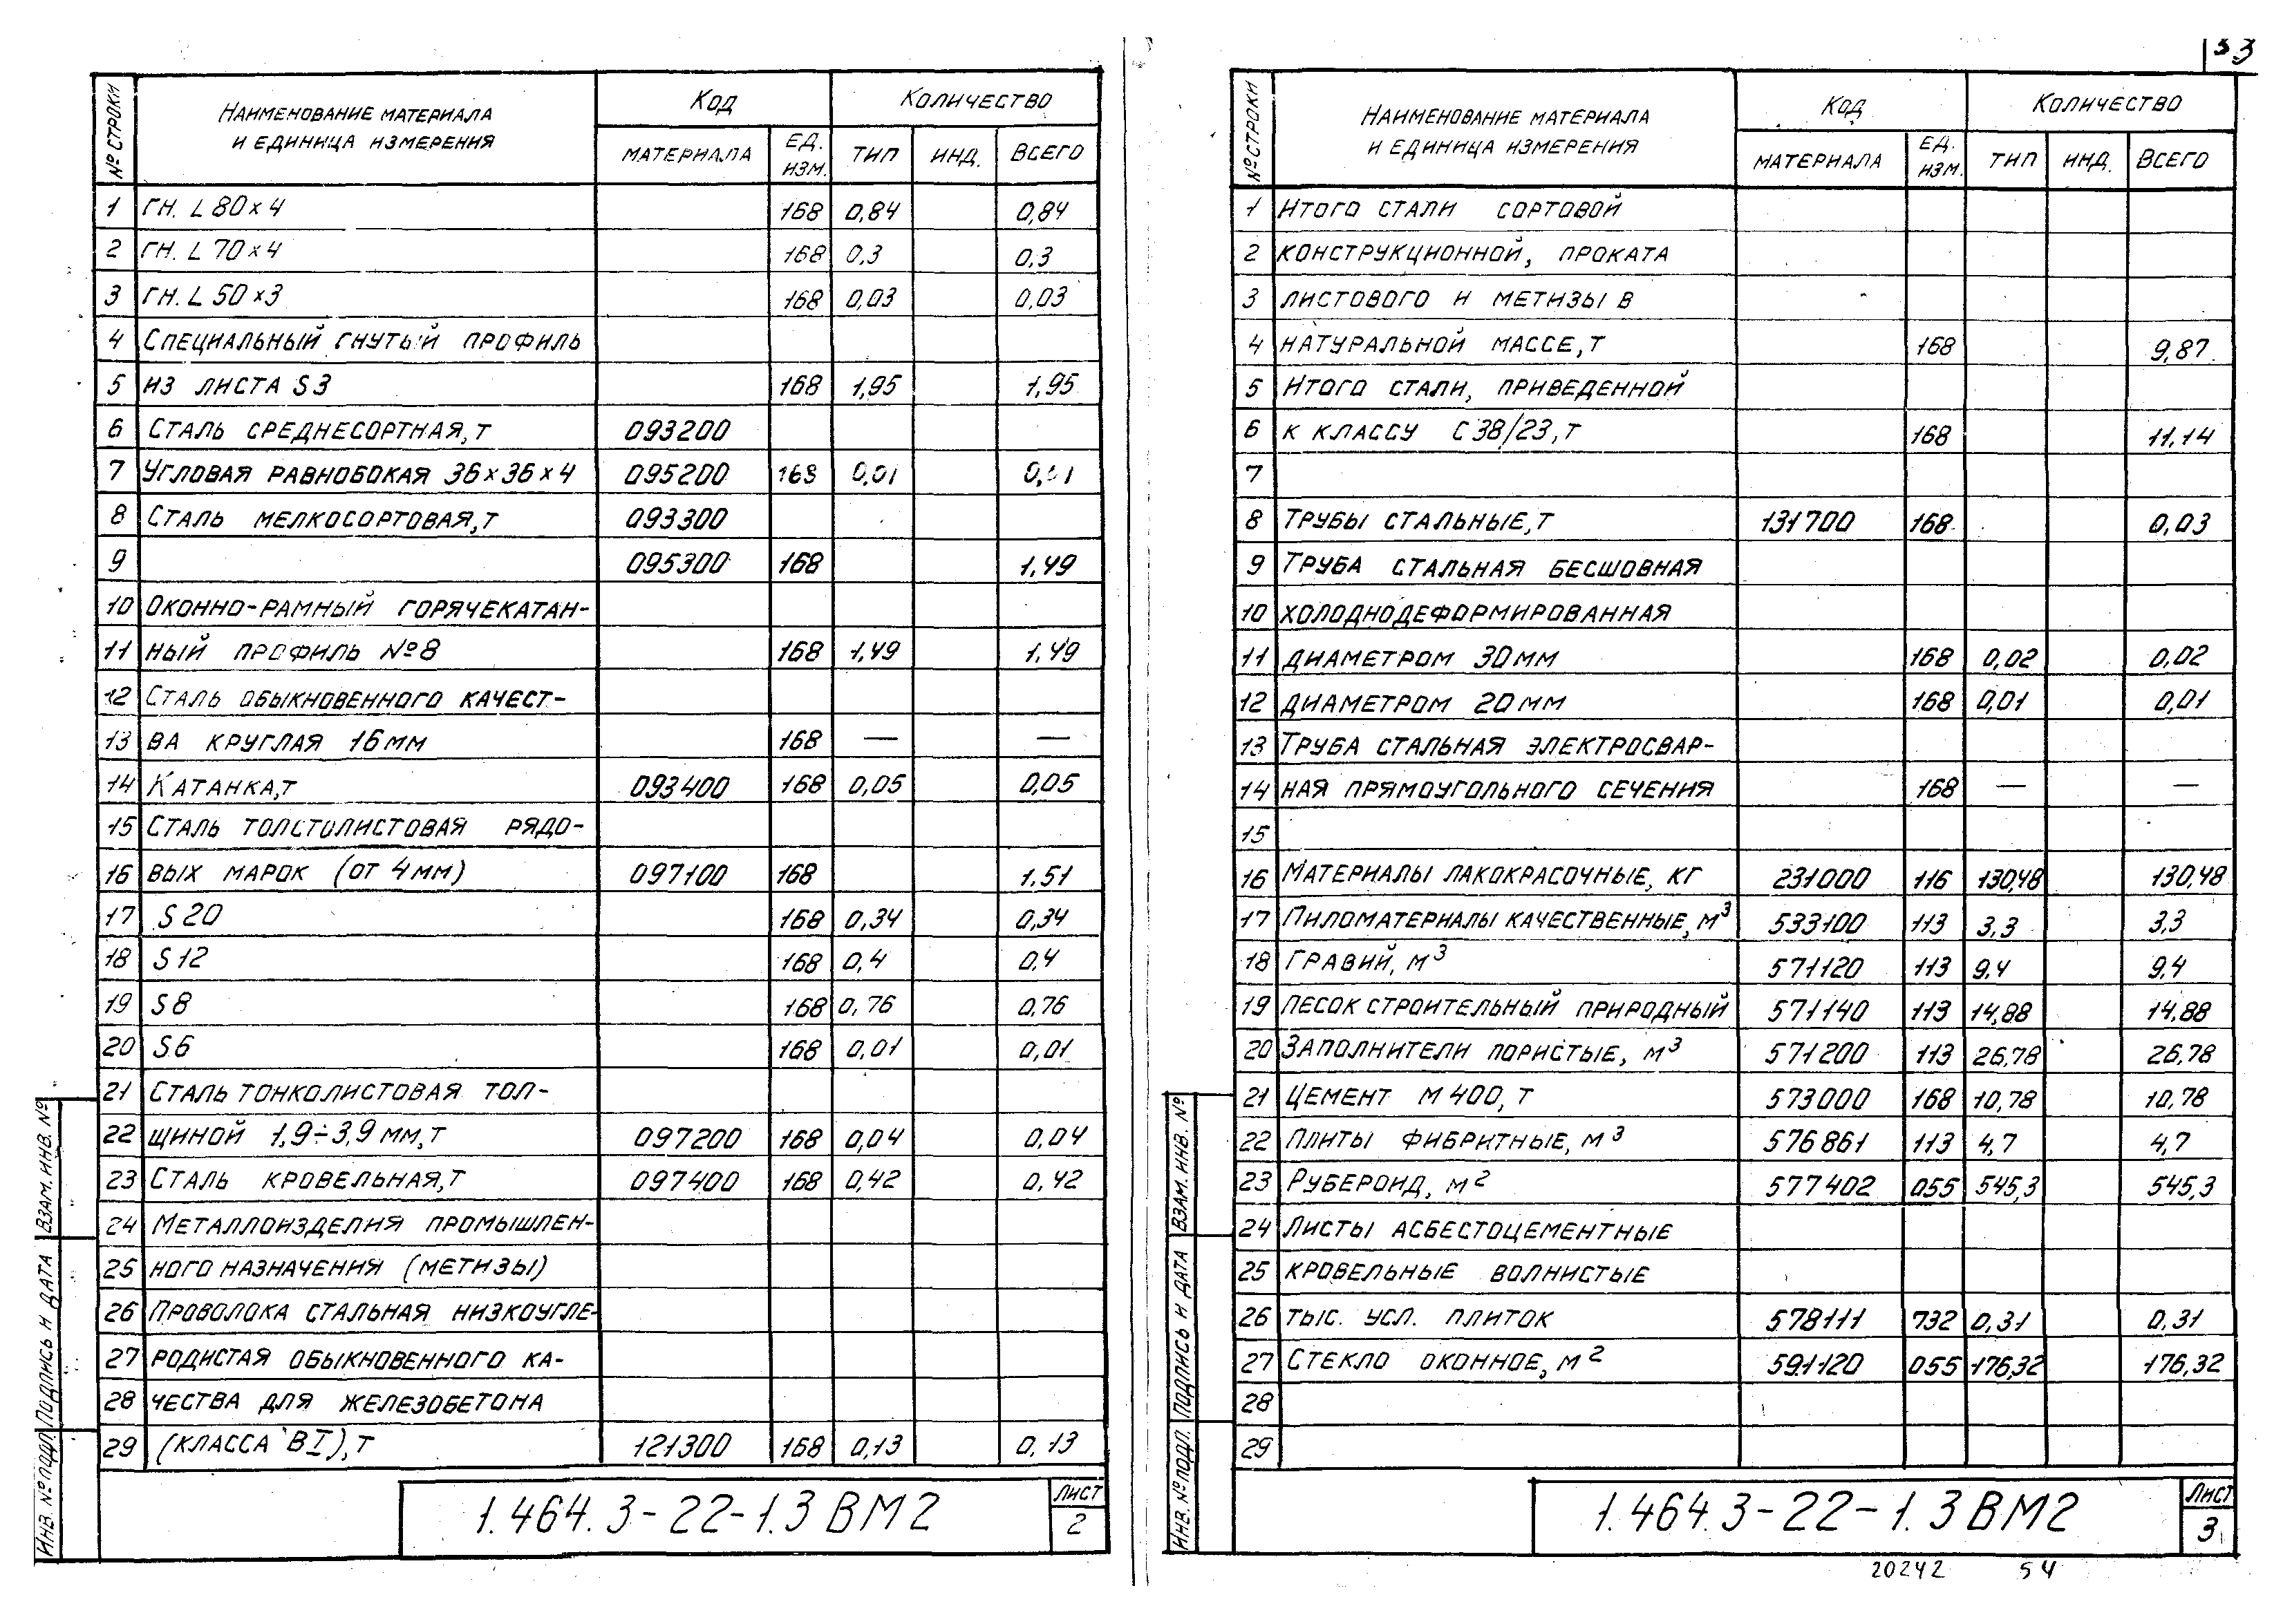 53
№ строки | Наименование материала и единица измерения | Код | Количество
материала | ед. изм. | тип | инд. | Всего
1 | гн. L 80×4 | 168 | 0,84 | 0,84
2 | гн. L 70×4 | 168 | 0,3 | 0,3
3 | гн. L 50×3 | 168 | 0,03 | 0,03
4 | Специальный гнутый профиль
5 | из листа S3 | 168 | 1,95 | 1,95
6 | Сталь среднесортная, т | 093200
7 | Угловая равнобокая 36×36×4 | 095200 | 168 | 0,01 | 0,01
8 | Сталь мелкосортовая, т | 093300
9 | 095300 | 168 | 1,49
10 | Оконно-рамный горячекатан-
11 | ный профиль №8 | 168 | 1,49 | 1,49
12 | Сталь обыкновенного качест-
13 | ва круглая 16мм | 168 | — | —
14 | Катанка, т | 093400 | 168 | 0,05 | 0,05
15 | Сталь толстолистовая рядо-
16 | вых марок (от 4мм) | 097100 | 168 | 1.51
17 | S20 | 168 | 0,34 | 0,34
18 | S12 | 168 | 0,4 | 0,4
19 | S8 | 168 | 0,76 | 0,76
20 | S6 | 168 | 0,01 | 0,01
21 | Сталь тонколистовая тол-
22 | щиной 1,9÷3,9мм, т | 097200 | 168 | 0,04 | 0,04
23 | Сталь кровельная, т | 097400 | 168 | 0,42 | 0,42
24 | Металлоизделия промышлен-
25 | ного назначения (метизы)
26 | Проволока стальная низкоугле-
27 | родистая обыкновенного ка-
28 | чества для железобетона
29 | (класса ВI), т | 121300 | 168 | 0,13 | 0,13
Инв. № подл. | Подпись и дата | Взам. инв. №
1.464.3-22-1.3 ВМ2
Лист
2
№ строки | Наименование материала и единица измерения | Код | Количество
материала | ед. изм. | тип | инд. | Всего
1 | Итого стали сортовой
2 | конструкционной, проката
3 | листового и метизы в
4 | натуральной массе, т | 168 | 9,87
5 | Итого стали, приведенной
6 | к классу С38/23, т | 168 | 11,14
7
8 | Трубы стальные, т | 131700 | 168 | 0,03
9 | Труба стальная бесшовная
10 | холоднодеформированная
11 | диаметром 30мм | 168 | 0,02 | 0,02
12 | диаметром 20мм | 168 | 0,01 | 0,01
13 | Труба стальная электросвар-
14 | ная прямоугольного сечения | 168 | — | —
15
16 | Материалы лакокрасочные, кг | 231000 | 116 | 130,48 | 130,48
17 | Пиломатериалы качественные, м³ | 533100 | 113 | 3,3 | 3,3
18 | Гравий, м³ | 571120 | 113 | 9,4 | 9,4
19 | песок строительный природный | 571140 | 113 | 14,88 | 14,88
20 | Заполнители пористые, м³ | 571200 | 113 | 26,78 | 26,78
21 | Цемент М400, т | 573000 | 168 | 10,78 | 10,78
22 | Плиты фибритные, м³ | 576861 | 113 | 4,7 | 4,7
23 | Рубероид, м² | 577402 | 055 | 545,3 | 545,3
24 | Листы асбестоцементные
25 | кровельные волнистые
26 | тыс. усл. плиток | 578111 | 732 | 0,31 | 0,31
27 | Стекло оконное, м² | 591120 | 055 | 176,32 | 176,32
28
29
Инв. № подл. | Подпись и дата | Взам. инв. №
1.464.3-22-1.3 ВМ2
Лист
3
20242 54